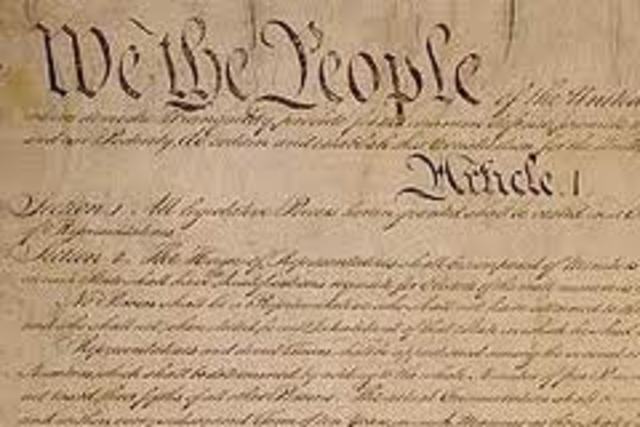 We the People of the United
insure domestic Tranquility, provide for the common defence, promote
and our Posterity, do ordain and establish this Constitution for the United
Article. I
Section. 1. All legislative Powers herein granted shall be vested in a
of Representatives.
Section. 2. The House of Representatives shall be composed of Members
Electors of the most numerous
No Person shall be a Representative who shall not have attained to the
and who shall not, when elected, be an Inhabitant of that State in which he shall
Representatives and direct Taxes shall be apportioned among the several
Numbers, which shall be determined by adding to the whole Number of free Persons
not taxed, three fifths of all other Persons. The actual Enumeration shall
and within every subsequent Term of ten Years, in such Manner as they shall